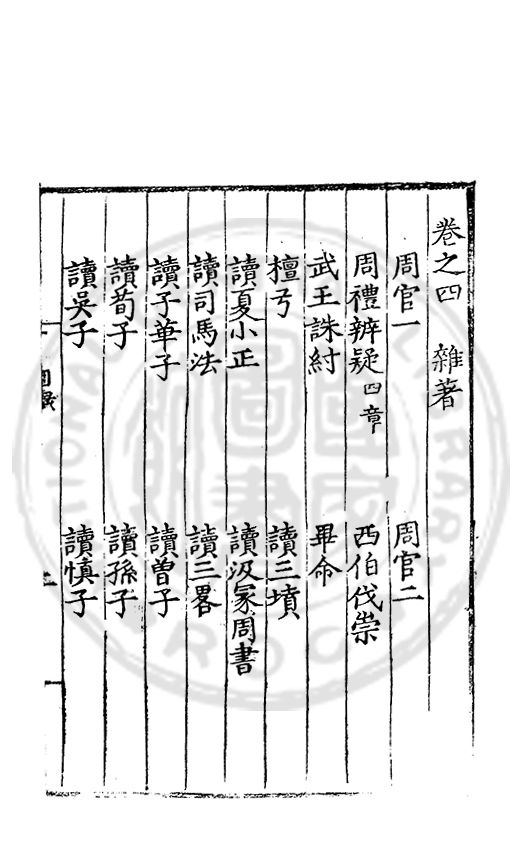 卷之四 雜著
周官一 周官二
周禮辨疑四章 西伯伐崇
武王誅紂 畢命
檀弓 讀三墳
讀夏小正 讀汲冢周書
讀司馬法 讀三畧
讀子華子 讀曾子
讀荀子 讀孫子
讀吳子 讀慎子
目錄